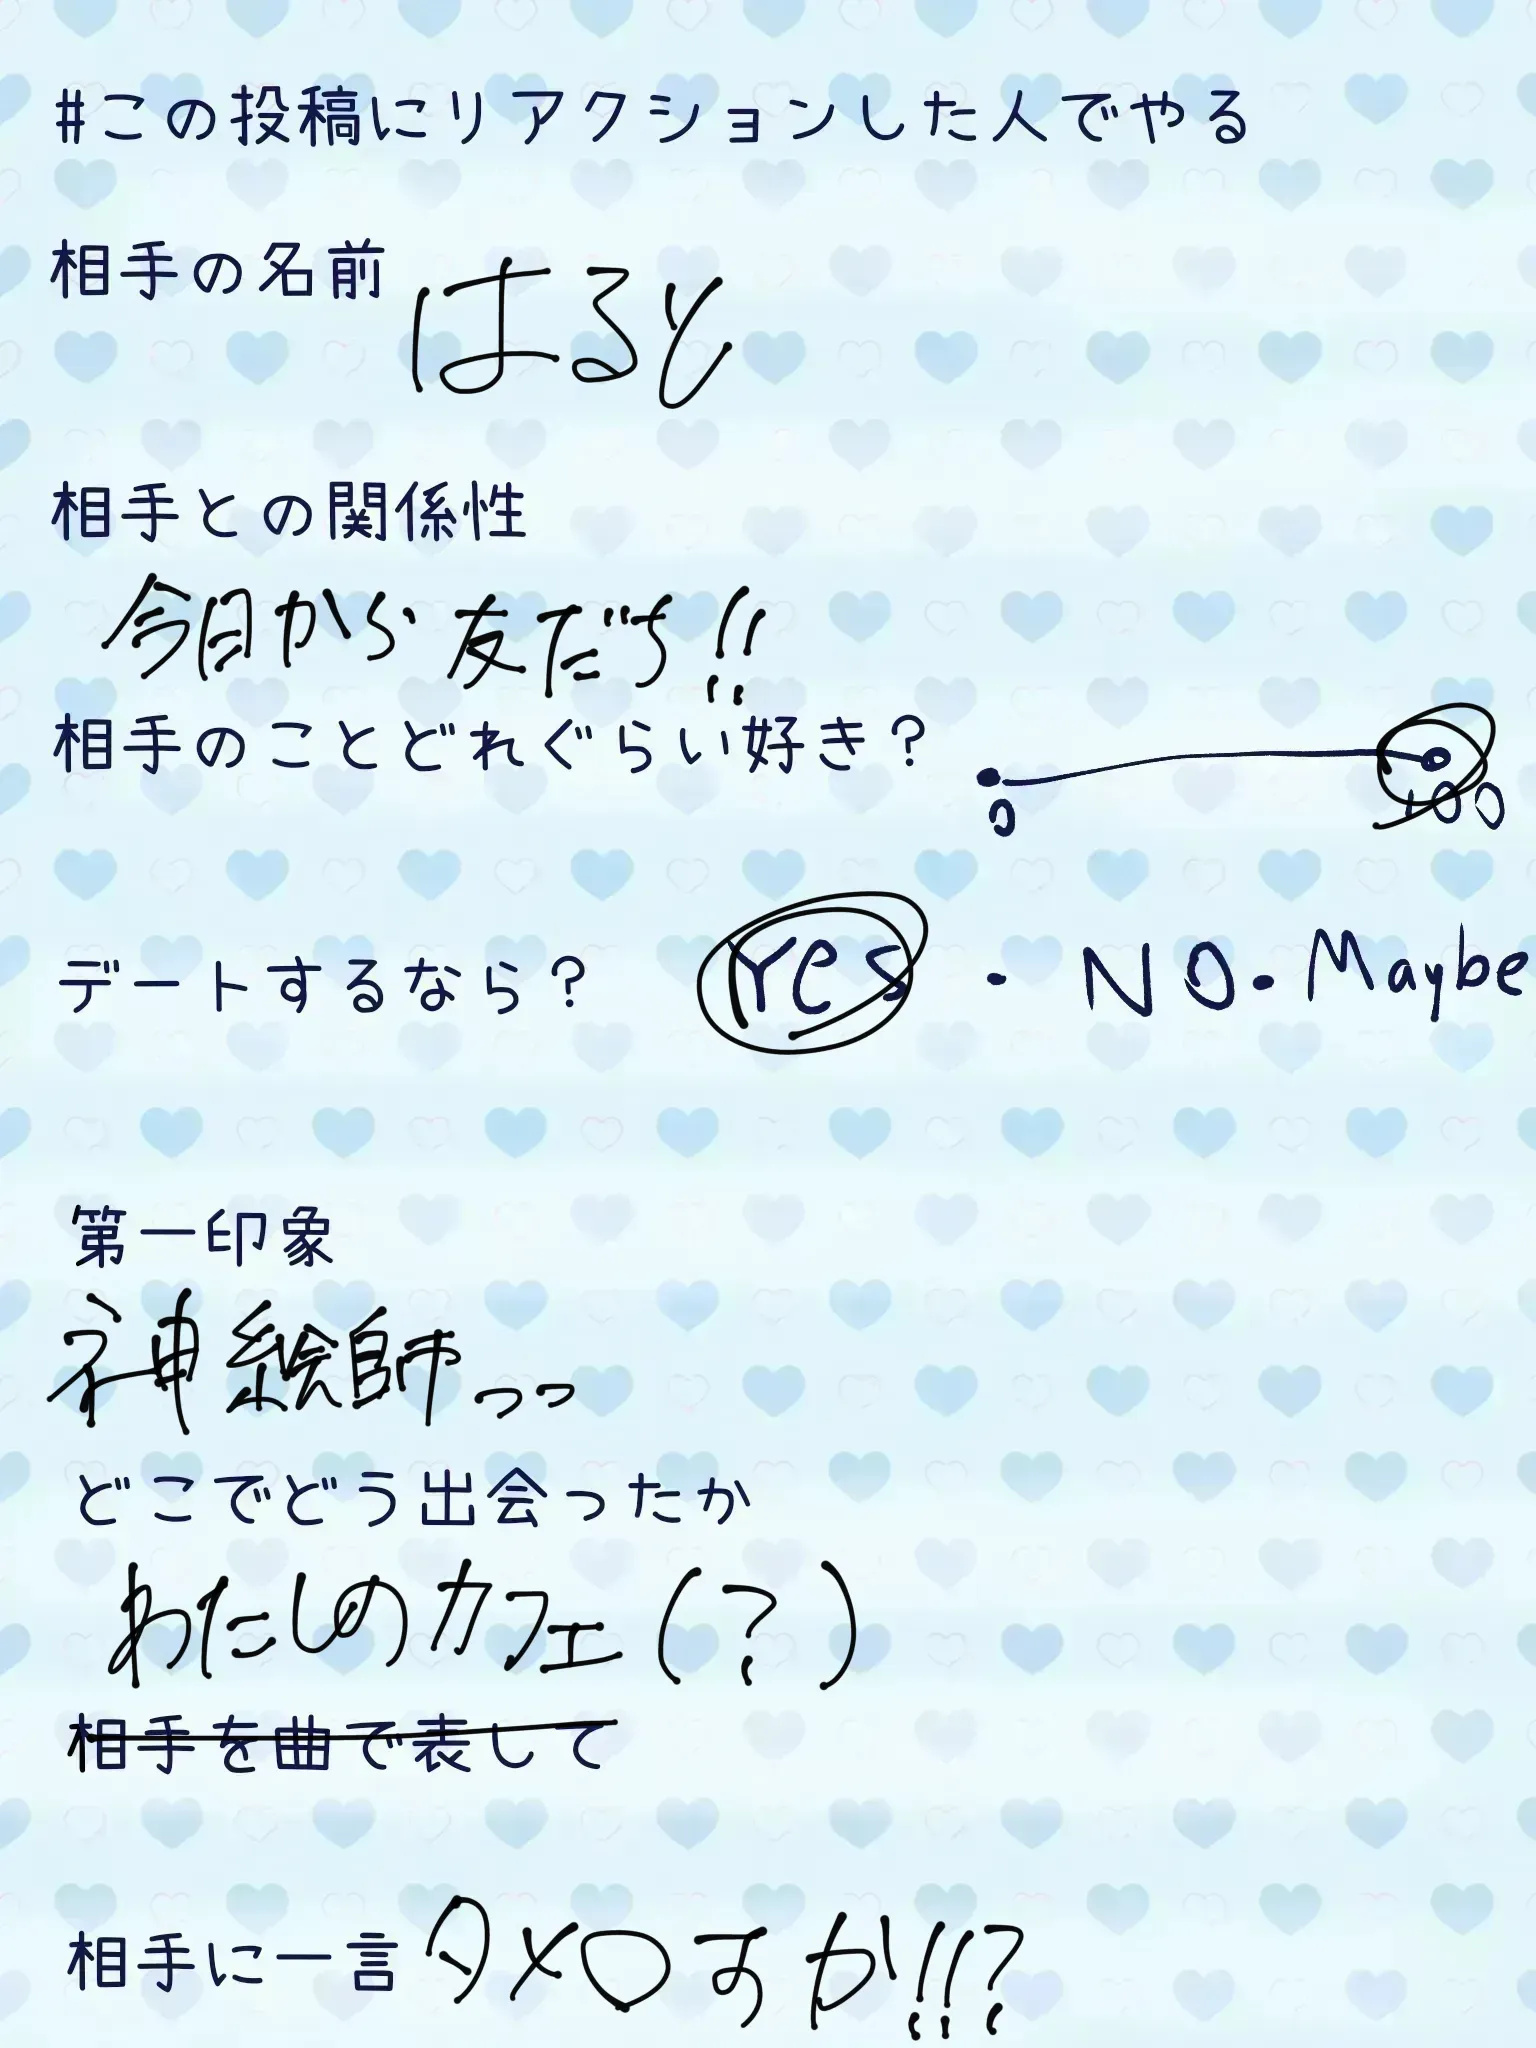 #この投稿にリアクションした人でやる
相手の名前 はると
相手との関係性
今日から友だち!!
相手のことどれぐらい好き？ 0 100
デートするなら？ Yes・NO・Maybe
第一印象
神絵師っっ
どこでどう出会ったか
わたしのカフェ(?)
相手を曲で表して
相手に一言 タメ口すか!!?